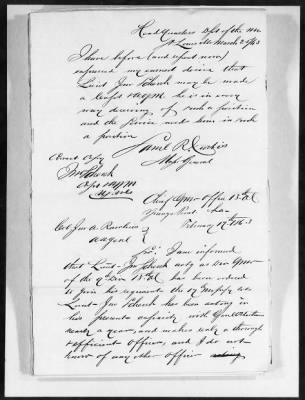 Head Quarters Dept of the Mo
St Louis Mo March 2 1863
I have before (and repeat now)
expressed my earnest desire that
Lieut Jno Schenk may be made
a Capt & AQM he is in every
way deserving of such a position
and the service needs him in such
a position
Saml R. Curtis
Maj General
Correct Copy
Jno Schenk
Capt & AQM
Chief Qmr Office 13" AC
Youngs Point La
February 17th 1863
Col Jno A. Rawlins
AA Genl
Sir, I am informed
that Lieut Jno Schenk actg as Div Qmr
of the 9" Div 13" AC has been ordered
to join his regiment the 17 Mo
Lieut Jno Schenk has been acting in
his present capacity with Genl
nearly a year, and makes only a thorough
& efficient officer, and I do not
know of any other officer